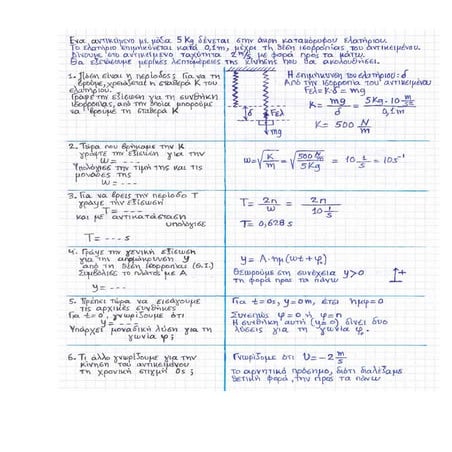 Ένα αντικείμενο με μάζα 5 Kg δένεται στην άκρη κατακόρυφου ελατηρίου.
Το ελατήριο επιμηκύνεται κατά 0,1m, μέχρι τη θέση ισορροπίας του αντικειμένου.
Δίνουμε στο αντικείμενο ταχύτητα 2 m/s με φορά προς τα κάτω.
Θα εξετάσουμε μερικές λεπτομέρειες της κίνησης που θα ακολουθήσει.
1. Πόση είναι η περίοδος; Για να τη
βρούμε, χρειάζεται η σταθερά K του
ελατηρίου.
Γράψε την εξίσωση για τη συνθήκη
ισορροπίας, από την οποία μπορούμε
να βρούμε τη σταθερά K
δ
Fελ
mg
Η επιμήκυνση του ελατηρίου: δ
Από την ισορροπία του αντικειμένου:
Fελ = K·δ = mg
K = mg/δ = 5Kg·10 m/s²/0,1m
K = 500 N/m
2. Τώρα που βρήκαμε την K
γράψτε την εξίσωση για την
ω = ---
Υπολόγισε την τιμή της και τις
μονάδες της
ω = ---
ω = √K/m = √500 N/m/5Kg = 10 1/s = 10s⁻¹
3. Για να βρεις την περίοδο T
γράψε την εξίσωση
T = ---
και με αντικατάσταση
υπολόγισε
T = --- s
T = 2π/ω = 2π/10 1/s
T = 0,628s
4. Γράψε την γενική εξίσωση
για της απομάκρυνση y
από τη θέση ισορροπίας (Θ.Ι.)
Συμβόλισε το πλάτος με A
y = ---
y = A·ημ(ωt + φ)
Θεωρούμε στη συνέχεια y>0
τη φορά προς τα πάνω
+
5. Πρέπει τώρα να εισάγουμε
τις αρχικές συνθήκες
Για t=0, γνωρίζουμε ότι
y = ---
Υπάρχει μοναδική λύση για τη
γωνία φ;
Για t=0s, y=0m, έτσι ημφ=0
Συνεπώς φ=0 ή φ=π
Η συνθήκη αυτή (y=0) δίνει δυο
λύσεις για τη γωνία φ.
6. Τι άλλο γνωρίζουμε για την
κίνηση του αντικειμένου
τη χρονική στιγμή 0s;
Γνωρίζουμε ότι υ = -2 m/s
το αρνητικό πρόσημο, διότι διαλέξαμε
θετική φορά, την προς τα πάνω